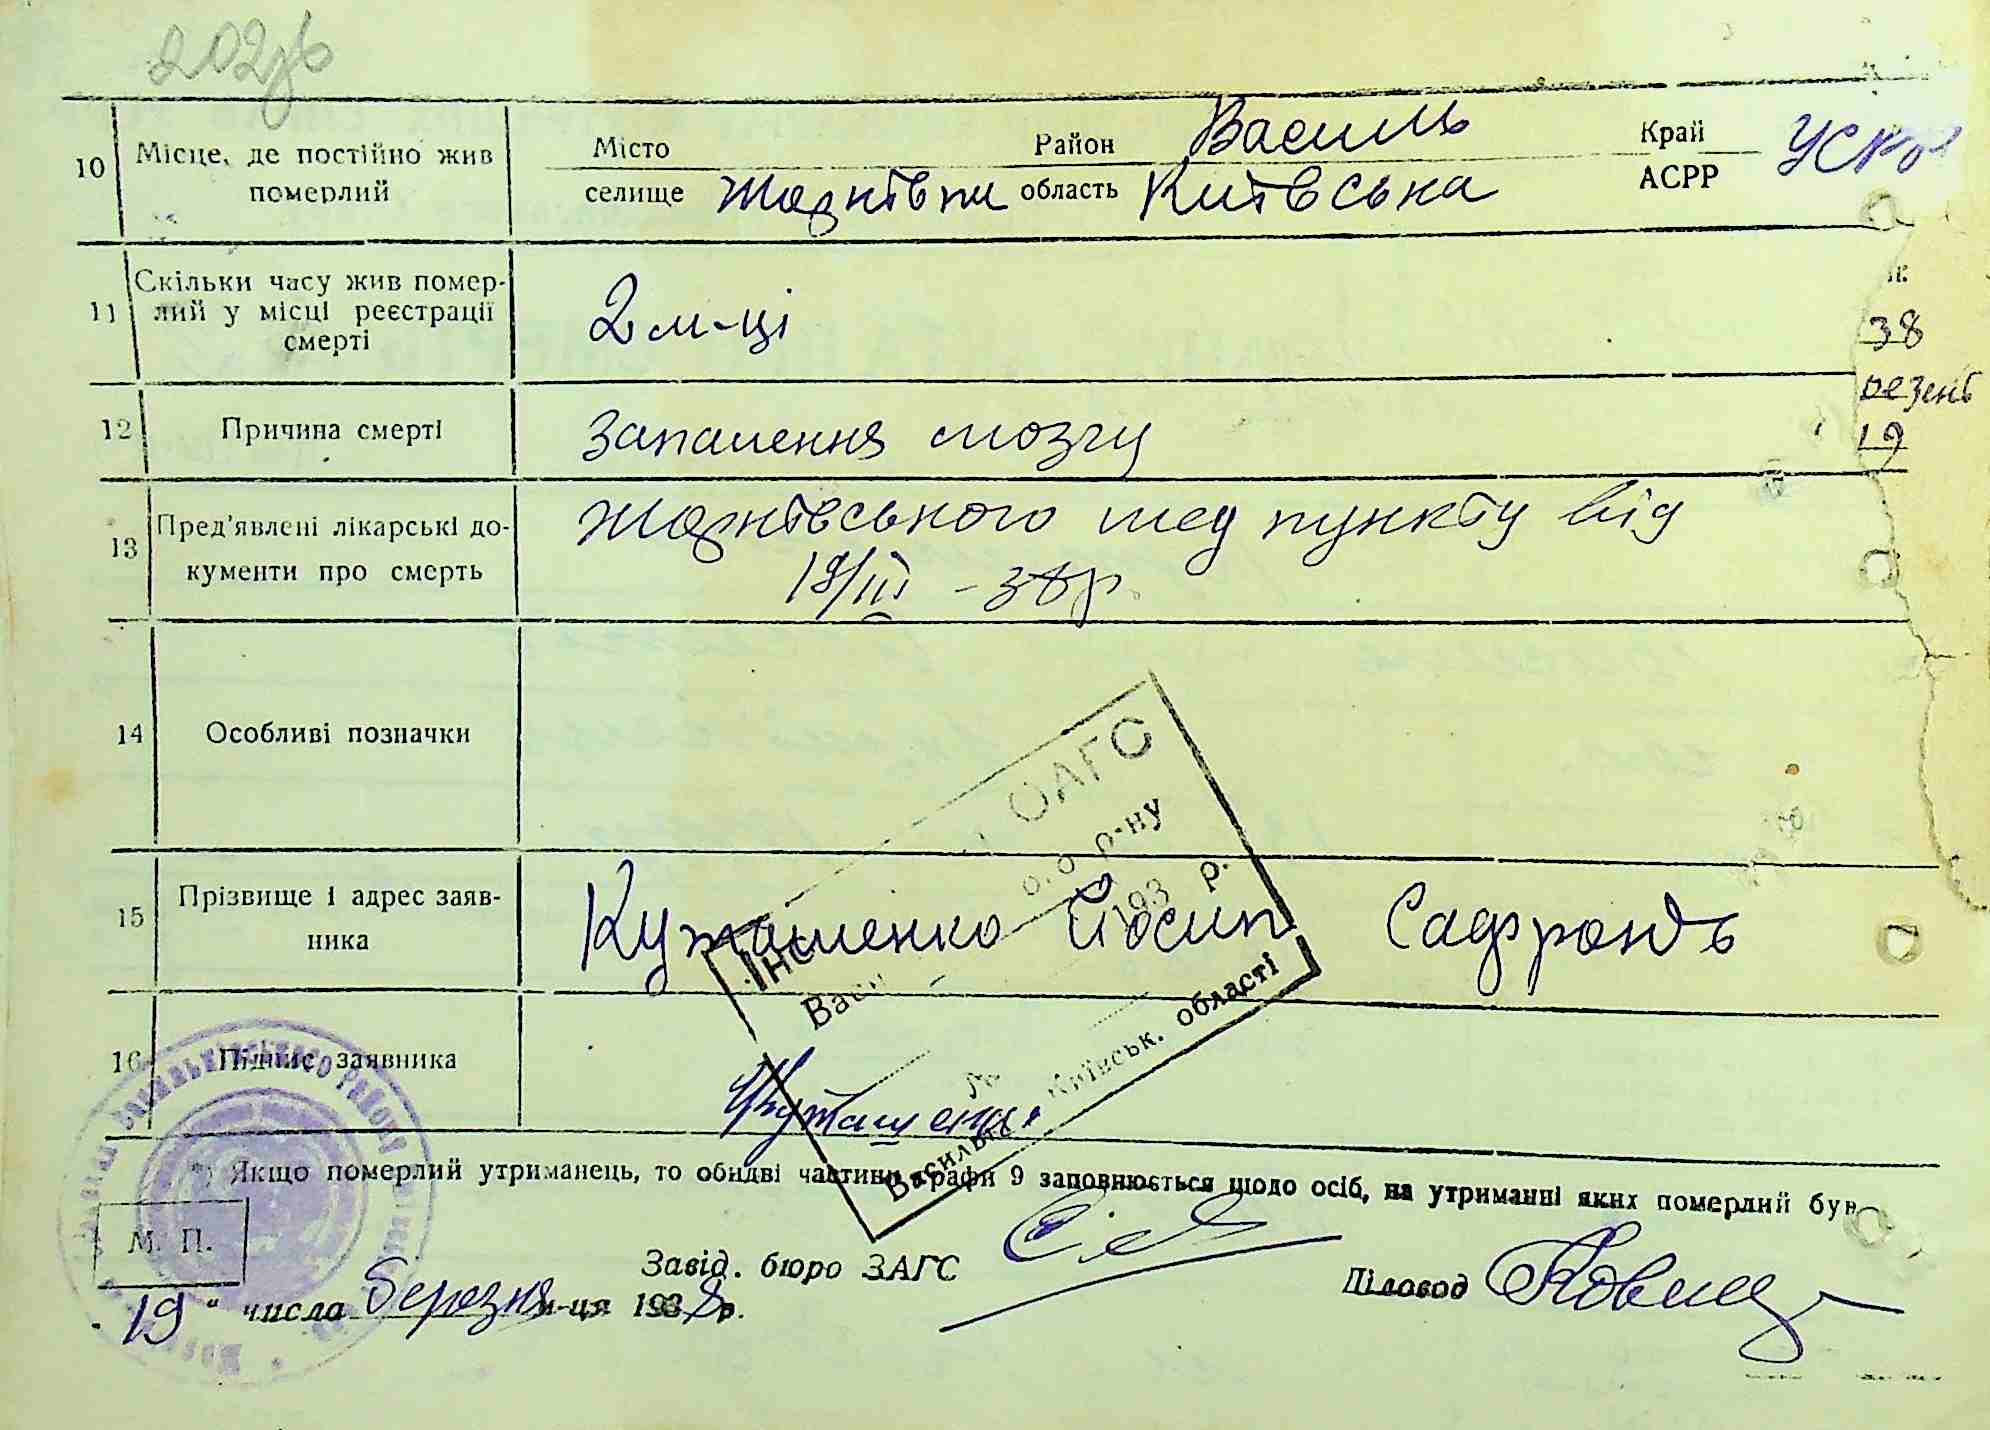 202зв
10 Місце, де постійно жив померлий
Місто Район Василь Край УСРР
селище область Київська АСРР
11 Скільки часу жив помер-
лий у місці реєстрації
смерті
2 м-ці
38
12 Причина смерті
запалення мозгу
19
13 Пред'явлені лікарські до-
кументи про смерть
мед пункту від
19/III - 38 р.
14 Особливі позначки
ОАГС
р-ну
193 р.
15 Прізвище і адрес заяв-
ника
Йосип
Київськ. області
16 Підпис заявника
*) Якщо померлий утриманець, то обидві частини графи 9 заповнюється щодо осіб, на утриманні яких померлий був
М. П.
Завід. бюро ЗАГС
Діловод
19 " числа Березня м-ця 1938 р.